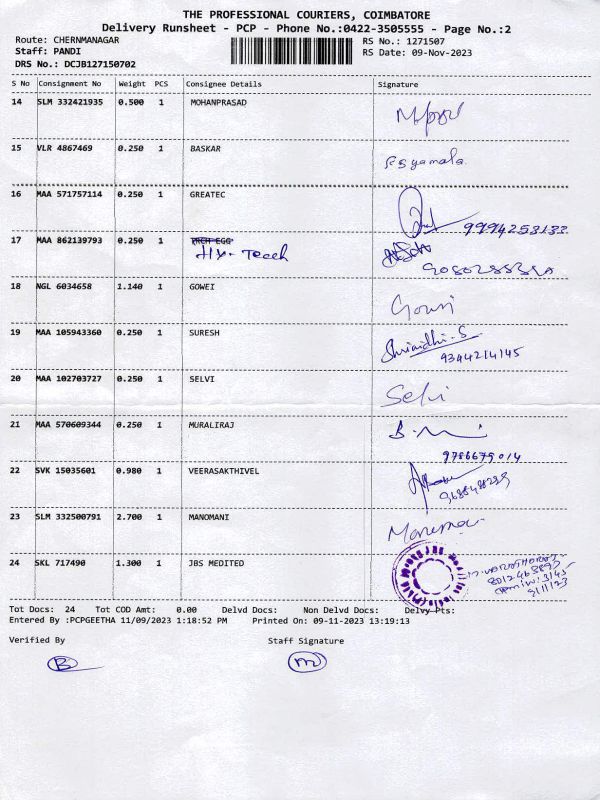 THE PROFESSIONAL COURIERS, COIMBATORE
Delivery Runsheet - PCP - Phone No.:0422-3505555 - Page No.:2
Route: CHERNMANAGAR RS No.: 1271507
Staff: PANDI RS Date: 09-Nov-2023
DRS No.: DCJB127150702
S No Consignment No Weight PCS Consignee Details Signature
14 SLM 332421935 0.500 1 MOHANPRASAD
15 VLR 4867469 0.250 1 BASKAR P Syamala
16 MAA 571757114 0.250 1 GREATEC 9994253133
17 MAA 862139793 0.250 1
Hx- Teech
18 NGL 6034658 1.140 1 GOWEI Gowri
19 MAA 105943360 0.250 1 SURESH Shrinidhi.S
9344214145
20 MAA 102703727 0.250 1 SELVI Selvi
21 MAA 570609344 0.250 1 MURALIRAJ
9786675014
22 SVK 15035601 0.980 1 VEERASAKTHIVEL
23 SLM 332500791 2.700 1 MANOMANI
24 SKL 717490 1.300 1 JBS MEDITED
Tot Docs: 24 Tot COD Amt: 0.00 Delvd Docs: Non Delvd Docs: Delvy Pts:
Entered By :PCPGEETHA 11/09/2023 1:18:52 PM Printed On: 09-11-2023 13:19:13
Verified By Staff Signature
B m